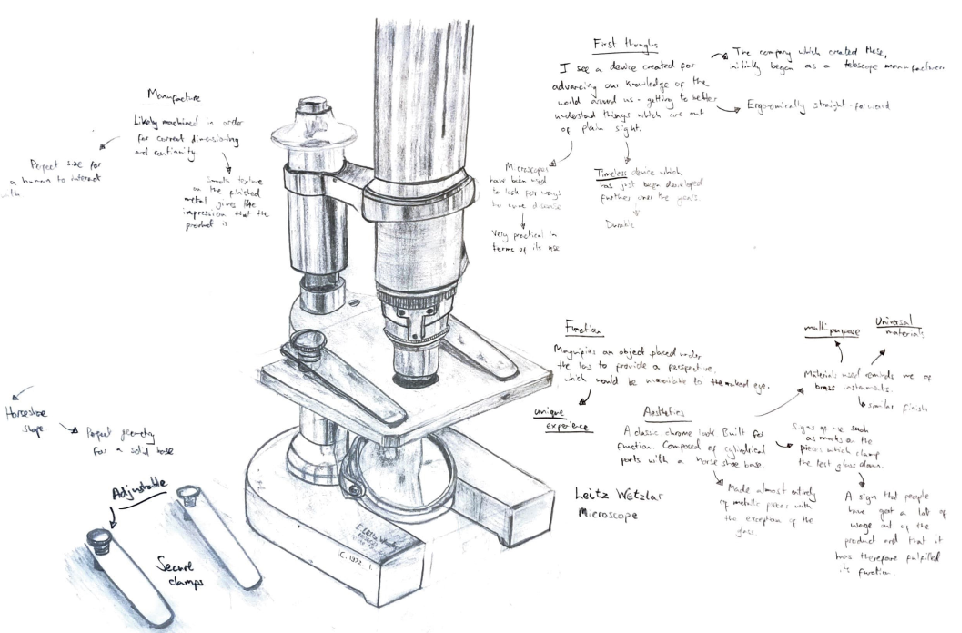 First thoughts
I see a device created for
advancing our knowledge of the
world around us - getting to better
understand things which are out
of plain sight.
The company which created these,
began as a telescope manufacturer
Ergonomically straight-forward
Microscopes
have been used
to look for ways
to cure disease
Very practical in
terms of its use
Timeless device which
has just been developed
further over the years.
Durable
Manufacture
Likely machined in order
for correct dimensioning
and continuity
Perfect size for
a human to interact
Smooth texture
on the polished
metal gives the
impression that the
product is
Function
Magnifies an object placed under
the lens to provide a perspective,
which would be invisible to the naked eye.
unique
experience
Aesthetics
A classic chrome look. Built for
function. Composed of cylindrical
parts with a horse shoe base
multi purpose
Universal
materials
Materials used reminds me of
brass instruments.
similar finish
Signs of use such
as marks on the
pieces which clamp
the test glass down.
A sign that people
have got a lot of
usage out of the
product and that it
has therefore fulfilled
its function
Made almost entirely
of metallic pieces with
the exception of the
glass.
Leitz Wetzlar
Microscope
Horseshoe
shape
Perfect geometry
for a solid base
Adjustable
Secure
clamps